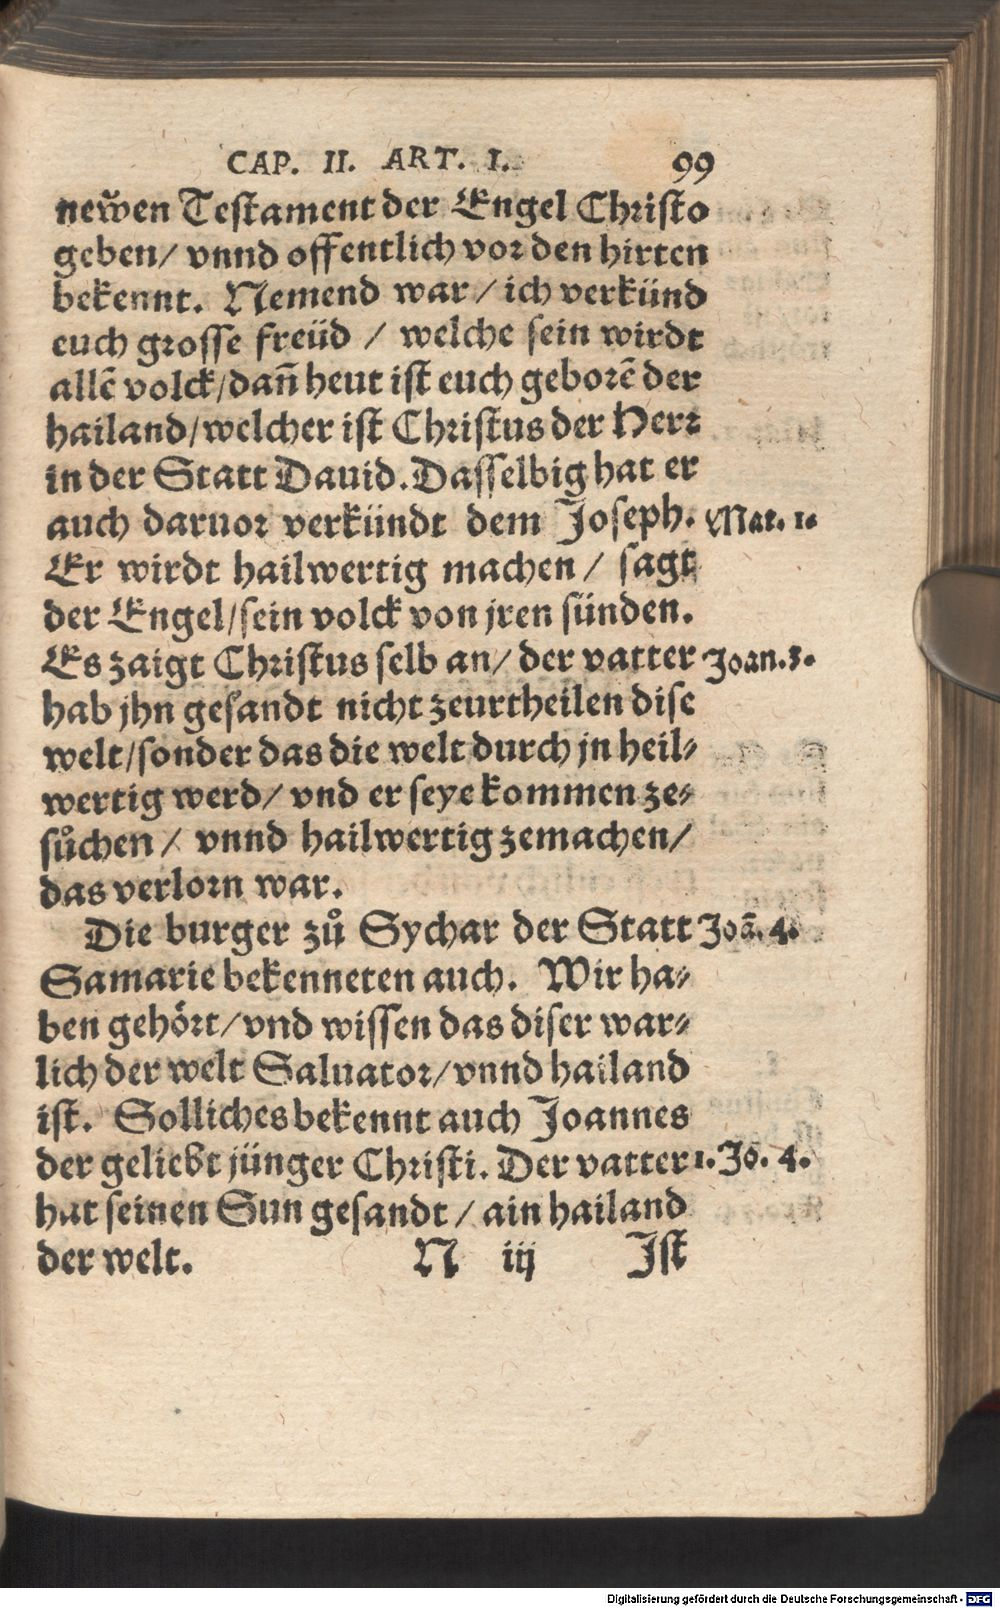 CAP. II. ART. I. 99
new̌en Testament der Engel Christo
geben/ vnnd offentlich vor den hirten
bekennt. Nemend war/ ich verkünd
euch grosse freüd / welche sein wirdt
allẽ volck/dañ heut ist euch geborẽ der
hailand/welcher ist Christus der Herr
in der Statt Dauid. Dasselbig hat er
auch daruor verkündt dem Joseph. Mat. 1.
Er wirdt hailwertig machen / sagt
der Engel/sein volck von jren sünden.
Es zaigt Christus selb an/ der vatter Joan. 3.
hab jhn gesandt nicht zeurtheilen dise
welt/sonder das die welt durch jn heil-
wertig werd/ vnd er seye kommen ze-
sůchen / vnnd hailwertig zemachen/
das verlorn war.
Die burger zů Sychar der Statt Joã. 4.
Samarie bekenneten auch. Wir ha-
ben gehört/vnd wissen das diser war-
lich der welt Saluator/vnnd hailand
ist. Solliches bekennt auch Joannes
der geliebt jünger Christi. Der vatter 1. Jo. 4.
hat seinen Sun gesandt / ain hailand
der welt. N iij Ist
Digitalisierung gefördert durch die Deutsche Forschungsgemeinschaft - DFG